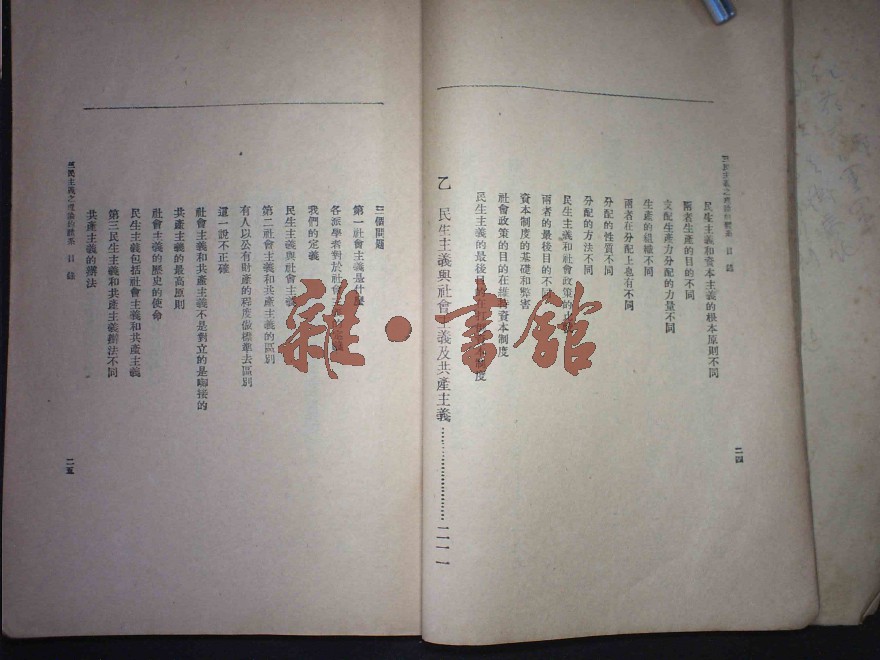 三民主義之理論的體系 目錄
民生主義和資本主義的根本原則不同
兩者生產的目的不同
支配生產力分配的力量不同
生產的組織不同
兩者在分配上也有不同
分配的性質不同
分配的方法不同
民生主義和社會政策的
兩者的最後目的不同
資本制度的基礎和弊害
社會政策的目的在維持資本制度
民生主義的最後目的 制度
乙 民生主義與社會主義及共產主義……………二一一
二四
三個問題
第一社會主義是什麼
各派學者對於社會主義的定義
我們的定義
民生主義與社會主義
第二社會主義和共產主義的區別
有人以公有財產的程度做標準去區別
這一說不正確
社會主義和共產主義不是對立的是啣接的
共產主義的最高原則
社會主義的歷史的使命
民生主義包括社會主義和共產主義
第三民生主義和共產主義辦法不同
共產主義的辦法
三民主義之理論的體系 目錄
二五
雜·書館